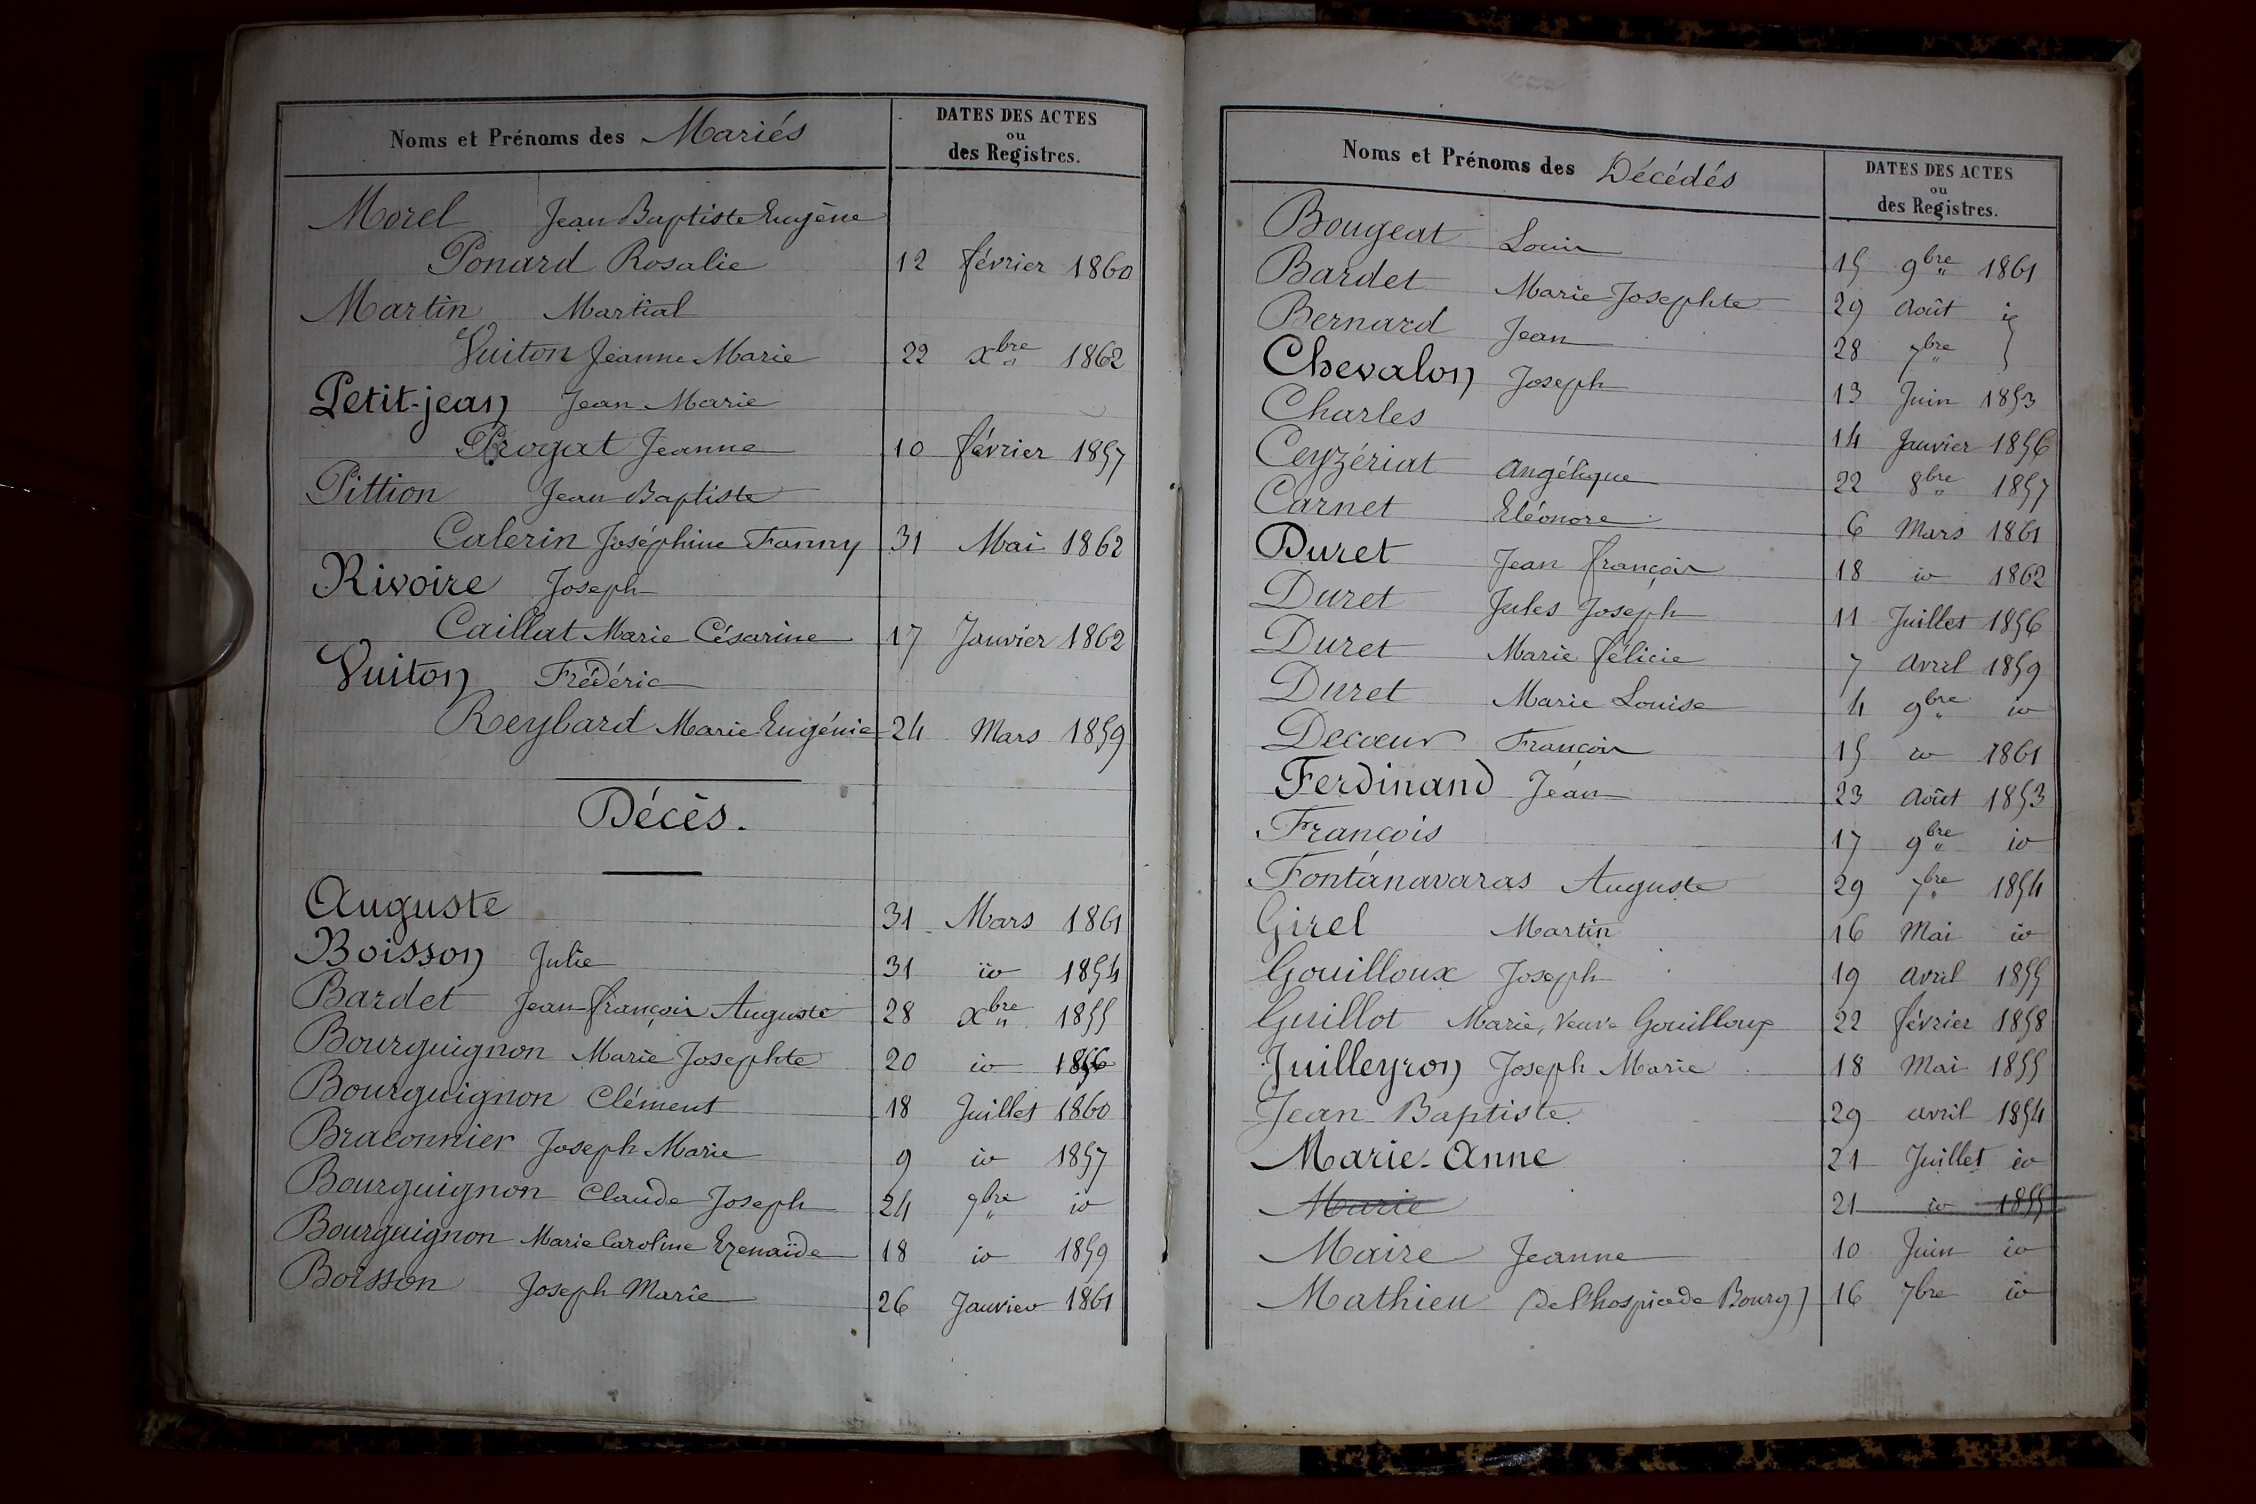 Noms et Prénoms des Mariés
DATES DES ACTES
ou
des Registres.
Morel Jean Baptiste Eugène
Ponard Rosalie 12 février 1860
Martin Martial
Vuiton Jeanne Marie 22 xbre 1862
Petit-jean Jean Marie
Progat Jeanne 10 février 1857
Pittion Jean Baptiste
Calerin Joséphine Fanny 31 Mai 1862
Rivoire Joseph
Caillat Marie Césarine 17 Janvier 1862
Vuiton Frédéric
Reybard Marie Eugénie 24 Mars 1859
Décès.
Auguste 31 Mars 1861
Boisson Julie 31 io 1854
Bardet Jean françois Auguste 28 xbre 1855
Bourguignon Marie Josephte 20 io 1856
Bourguignon Clément 18 Juillet 1860
Braconnier Joseph Marie 9 io 1857
Bourguignon Claude Joseph 24 9bre io
Bourguignon Marie Caroline Ezenaïde 18 io 1859
Boisson Joseph Marie 26 Janvier 1861
Noms et Prénoms des Décédés
DATES DES ACTES
ou
des Registres.
Bougeat Louis 15 9bre 1861
Bardet Marie Josephte 29 Août
Bernard Jean 28 7bre
Chevalon Joseph 13 Juin 1853
Charles 14 Janvier 1856
Ceyzériat Angélique 22 8bre 1857
Carnet Eléonore 6 Mars 1861
Duret Jean françois 18 io 1862
Duret Jules Joseph 11 Juillet 1856
Duret Marie félicie 7 avril 1859
Duret Marie Louise 4 9bre io
Decœur François 15 io 1861
Ferdinand Jean 23 Août 1853
François 17 9bre io
Fontanavaras Auguste 29 7bre 1854
Girel Martin 16 Mai io
Gouilloux Joseph 19 avril 1855
Guillot Marie, Veuve Gouilloux 22 février 1858
Juilleyron Joseph Marie 18 Mai 1855
Jean Baptiste 29 avril 1854
Marie-Anne 21 Juillet io
Marie 21 io 1855
Maire Jeanne 10 Juin io
Mathieu (de l'hospice de Bourg) 16 7bre io